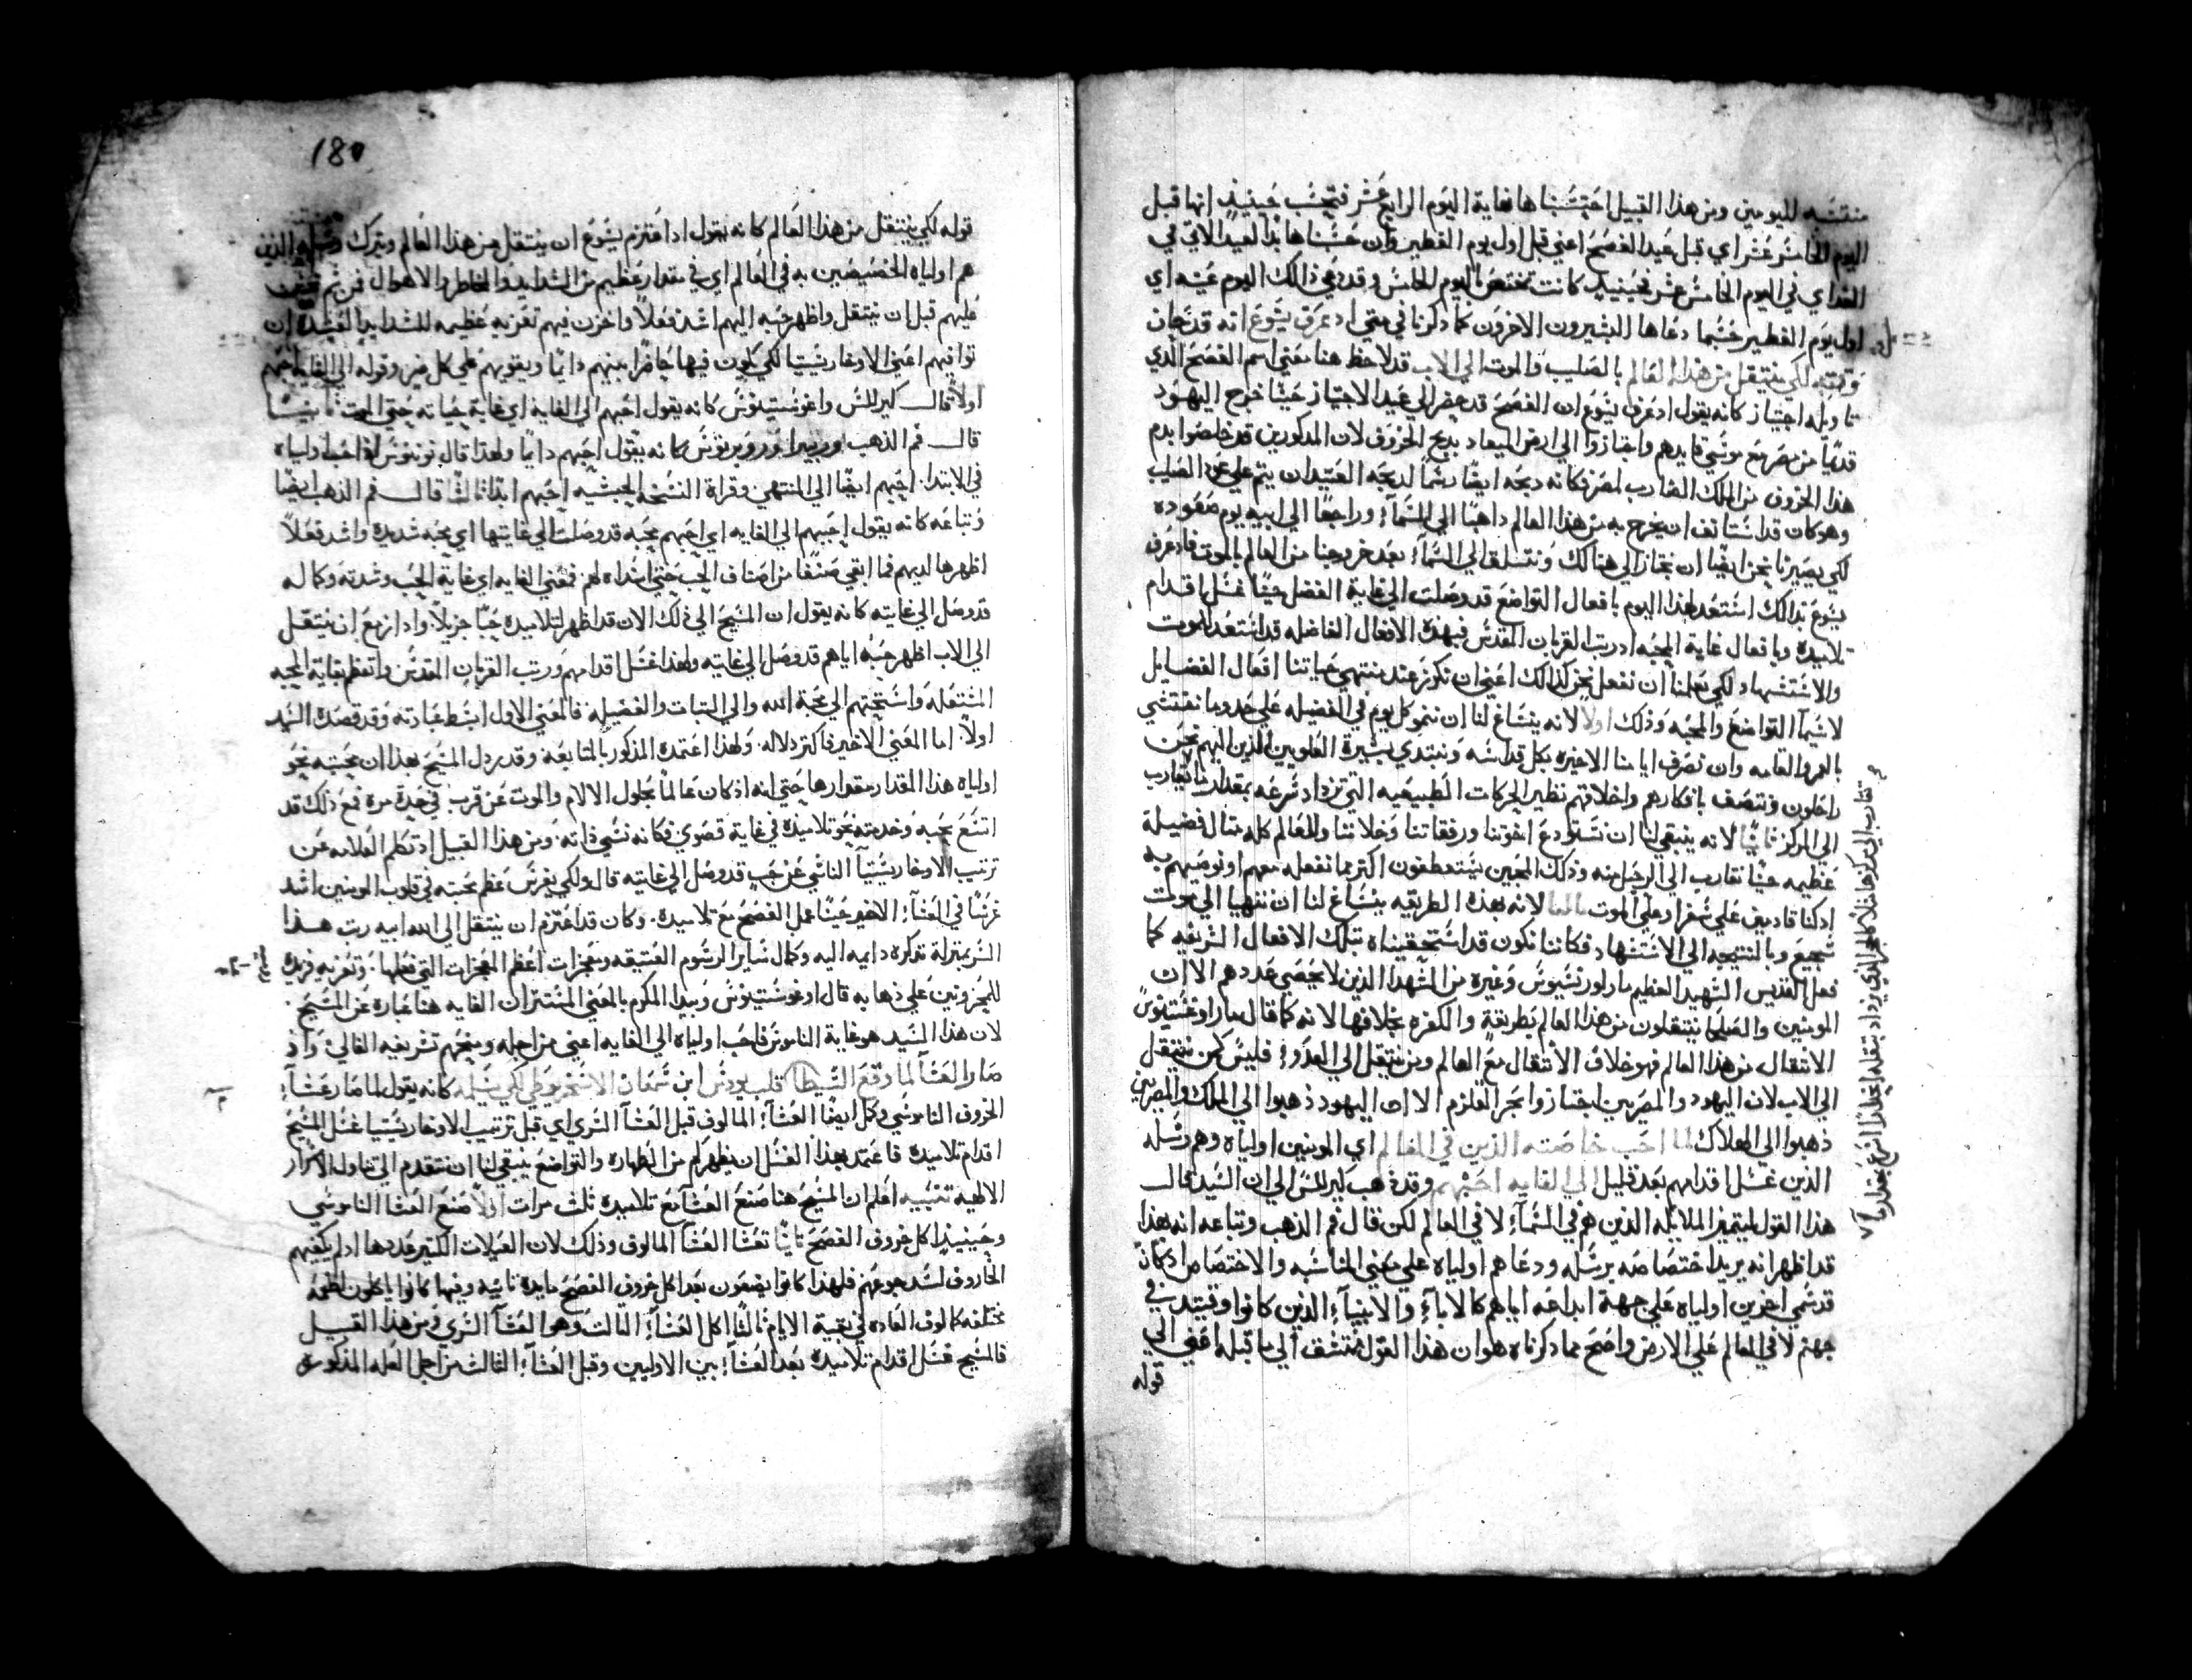 منتسبه لليومين ومن هذا القبيل احتسبناها لغاية اليوم الرابع عشر فتحسب حينيذٍ انها قبل
اليوم الخامس عشر اي قبل عيد الفصح اعني قبل اول يوم الفطير وان حسبناها بدا لعيد الاتي في
الغداي في اليوم الخامس عشر فحينيذٍ كانت تختص باليوم الخامس وقد دعي ذالك اليوم عينه اي
اول يوم الفطير حسبما دعاها البشيرون الاخرون كما ذكرنا في متي اد عرف يسوع انه قد حان
وقته لكي ينتقل من هذا العالم بالصليب والموت الي الاب قد لاحظ هنا معني اسم الفصح الذي
تاويله اجتياز كانه يقول اد عرف يسوع ان الفصح قد حضر الي عيد الاجتياز حيثما خرج اليهود
قديمًا من مصر مع موسي قايدهم واجتازوا الي ارض الميعاد بدبح الخروف لان المدكورين قد خلصوا بدم
هذا الخروف من الملاك الضارب لمصر فكانه دبحه ايضًا رسمًا لدبحه العتيد ان يتم علي عود الصليب
وهو كان قد استانف ان يخرج به من هذا العالم داهبًا الي السمآءِ وراجعًا الي ابيه يوم صعوده
لكي يصيرنا نحن ايضًا ان نجتاز الي هنالك ونتسلق الي السمآءِ بعد خروجنا من العالم بالموت فاد عرف
يسوع بدالك استعد لهذا اليوم بافعال التواضع قد وصلت الي غاية الفضل حيثما غسل اقدام
تلاميده وبافعال غاية المحبه اد رتب القربان المقدس فبهذه الافعال الفاضله قد استعد للموت
والاستشهاد لكي يعلمنا ان نفعل نحن كذالك اعني ان نكرر عند منتهي حياتنا افعال الفضايل
لاسيما التواضع والمحبه وذلك اولاً لانه ينساغ لنا ان ننمو كل يوم في الفضيله علي حدوما ننتشي
بالعمر والقامه وان نصرف ايامنا الاخيره بكل قداسه ونبتدي بسيرة العلويين الذين اليهم نحن
راحلون ونتصف بافكارهم واخلاقهم نظير الحركات الطبيعيه التي تزداد سرعه بمقدار ما تقارب
الي المركز ثانيًا لانه ينبقي لنا ان نستودع اخوتنا ورفقاتنا وخلاننا والعالم كله مثال فضيلة
عظيمه حيثما نقارب الي الرحيل منه وذلك المحبين يستعطفون اكتر مما نفعله معهم او نوصيهم به
اد كنا قادمين علي سفر او علي الموت ثالثًا لانه بهذه الطريقه ينساغ لنا ان ننتهيا الي موت
شجيع وبالنتيجه الي الاستشهاد فكاننا نكون قد استحقيناه بتلك الافعال الشريفه كما
فعل القديس الشهيد العظيم مار لورنسيوس وغيره من الشهدا الذين لا يحصي عددهم الا ان
المومنين والصلحا ينتقلون من هذا العالم بطريقةٍ والكفره بخلافها لانه كما قال مار اوغستينوس
الانتقال من هذا العالم فهو خلاف الانتقال مع العالم ومن ينتقل الي العدو فليس كمن ينتقل
الي الاب لان اليهود والمصريين اجتازوا بحر القلزم الا ان اليهود ذهبوا الي الملك والمصريين
ذهبوا الي الهلاك لما احب خاصته الذين في العالم اي المومنين اولياه وهم رسله
الذين غسل اقدامهم بعد قليل الي الغايه احبهم وقد ذهب كيرللس الي ان السيد قال
هذا القول ليتميز الملايكه الذين هم في السمآءِ لا في العالم لكن قال فم الذهب وتباعه انه بهذا
قد اظهر انه يريد اختصاصه برسله ودعاهم اولياه علي معني المناسبه والاختصاص ادكان
قد سمي اخرين اولياه علي جهة ابداعه اياهم كالابآءِ والانبيآءِ الذين كانوا وقتيدٍ في
جهنم لا في العالم علي الارض واضح مما دكرناه هو ان هذا القول منتسق الي ما قبله اعني الي
قوله
تقارب الي مركزها مثلاً كالحجر الذي يزداد بتقله انحدارًا اسرع بمقدار ما
180
قوله لكي ينتقل من هذا العالم كانه يقول اداعتزم يسوع ان ينتقل من هذا العالم ويترك رسله الذين
هم اولياه الخصيصين به في العالم اي في مقدار عظيم من الشدايد والمخاطر والاهوال فمن ثم تحنن
عليهم قبل ان ينتقل واظهر حبه اليهم اشد فعلاً واخزن فيهم تعزيه عظيمه للشدايد العتيده ان
توافيهم اعني الاوخاريستيا لكي يكون فيها حاضرًا بينهم دايمًا ويقويهم علي كل ضر وقوله الي الغايه احبهم
اولاً قال كيرللس واغوستينوس كانه يقول احبهم الي الغايه اي غاية حياته حتي الموت ثانيًا
قال فم الذهب وبيدا وروبرتوس كانه يقول احبهم دايمًا ولهذا قال نوننوس اد احب اولياه
في الابتدا احبهم ايضًا الي المنتهي وقراة النسخه الحبشيه احبهم ابدًا ثالثًا قال فم الذهب ايضًا
وتباعه كانه يقول احبهم الي الغايه اي احبهم بمحبه قد وصلت الي غايتها اي بمحبه شديده واشد فعلاً
اظهرها لديهم فما ابقي صنفًا من اصناف الحب حتي ابداه لهم فمعني الغايه اي غاية الحب وشدته وكماله
قد وصل الي غايته كانه يقول ان المسيح الي ذلك الان قد اظهر لتلاميده حبًا جزيلاً واد ازمع ان ينتقل
الي الاب اظهر حبه اياهم قد وصل الي غايته ولهذا غسل اقدامهم ورتب القربان المقدس واتعظم بغاية المحبه
المشتعله واستحثهم الي محبة الله والي الثبات والفضيله فالمعني الاول ابسط عبارته وقد قصده السيد
اولاً اما المعني الاخير فاكتر دلاله ولهذا اعتمده المذكور بالمتابعه وقد دل المسيح بهذا ان محبته نحو
اولياه هذا المقدار مقدارها حتي انه اذ كان عالمًا بحلول الالام والموت عن قرب في حدة مره فمع ذلك قد
اتسع بحبه وخدمته نحو تلاميده في غاية قصوي فكانه نسي ذاته ومن هذا القبيل اد تكلم العلامه عن
ترتيب الاوخاريستيا الناشي عن حب قد وصل الي غايته قال ولكي يغرس عظم محبته في قلوب المومنين اشد
غرسًا في العشآءِ الاخير حيثما عمل الفصح مع تلاميده وكان قد اعتزم ان ينتقل الي الله ابيه رتب هذا
السر بمنزلة تدكره دايمه اليه وكمال ساير الرسوم العتيقه ومعجزات اعظم المعجزات التي فعلها وتعزيه فريده
للمحزونين علي ذهابه قال اوغوستينوس وبيدا المكرم بالمعني المستتر ان الغايه هنا عباره عن المسيح
لان هذا السيد هو غاية الناموس فاحب اولياه الي الغايه اعني من اجله ومنحهم تشريفه الغالي واذ
صار العشآ لما وقع الشيطان قلب يودس ابن سمعان الاسخريوطي لكي يسلمه كانه يقول لما صار عشآءِ
الخروف الناموسي وكل ايضًا العشآءِ المالوف قبل العشآ السري اي قبل ترتيب الاوخاريستيا غسل المسيح
اقدام تلاميده فاعتمد بهذا الغسل ان يظهر لهم من الطهاره والتواضع ينبقي لنا ان نتقدم الي تناول الاسرار
الالهيه تنبيه اعلم ان المسيح هنا صنع العشآ مع تلاميده ثلث مرات اولاً صنع العشا الناموسي
وحينيدٍ اكل خروف الفصح ثانيًا تعشا العشآ المالوف وذلك لان العيلات الكتير عددها اد لم يكفيهم
الخاروف لسد جوعهم فلهذا كانوا يضعون بعد اكل خروف الفصح مايده ثانيه وفيها كانوا ياكلون اطعمه
مختلفه كمالوف العاده في بقية الايام ثالثًا اكل العشآءِ الثالث وهو العشآ السري ومن هذا القبيل
فالمسيح غسل اقدام تلاميده بعد العشآءِ بين الاوليين وقبل العشآءِ الثالث من اجل العله المذكوره